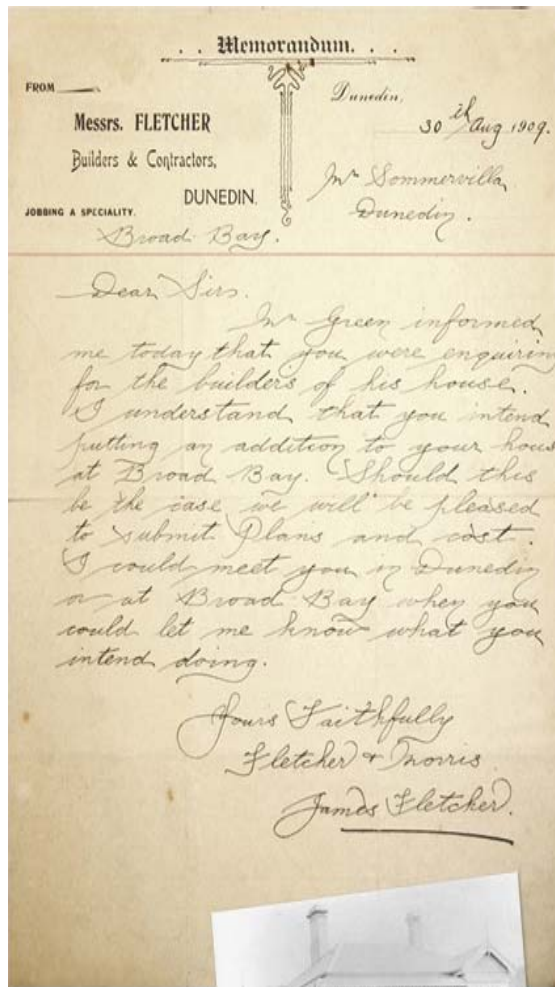 . . Memorandum. . .
FROM
Dunedin,
30th Aug 1909.
Messrs. FLETCHER
Builders & Contractors,
DUNEDIN.
JOBBING A SPECIALITY.
Broad Bay.
Mr Sommerville
Dunedin.
Dear Sirs.
Mr Green informed
me today that you were enquiring
for the builders of his house.
I understand that you intend
putting an addition to your hous
at Broad Bay. Should this
be the case we will be pleased
to submit Plans and cost.
I could meet you in Dunedin
or at Broad Bay when you
could let me know what you
intend doing.
Yours Faithfully
Fletcher & Morris
James Fletcher.